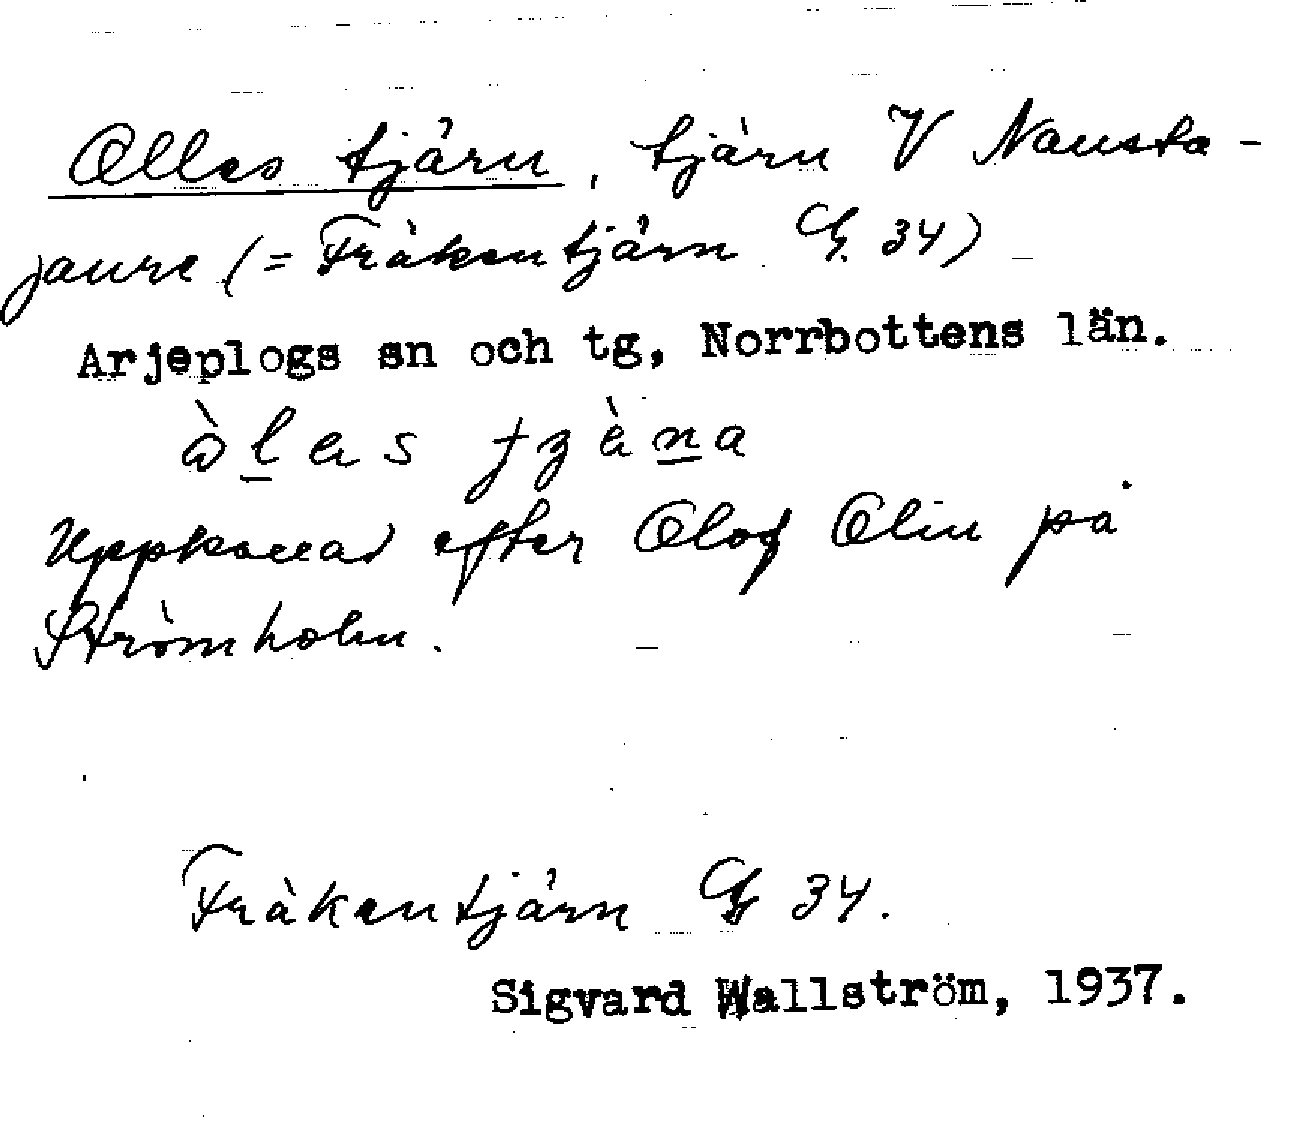 Olles tjärn, tjärn V Nausta-
jaure (= Fräkentjärn G. 34)
Arjeplogs sn och tg, Norrbottens län.
Uppkallad efter Olof Olin på
Strömholm.
Fräkentjärn G 34.
Sigvard Wallström, 1937.